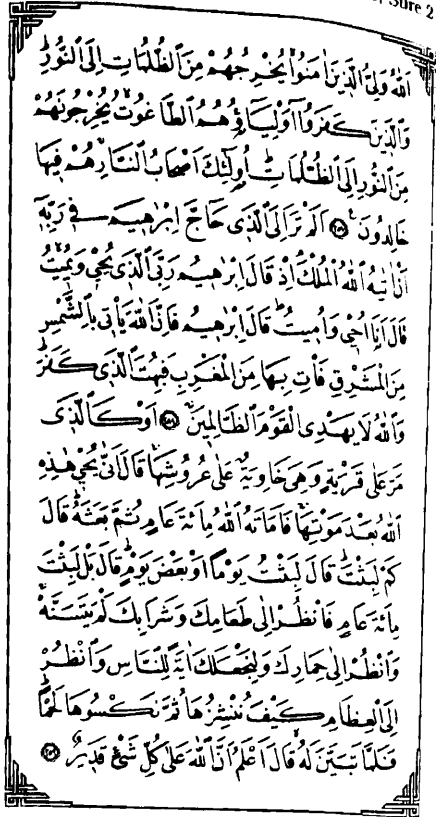 Sûre 2
اَللهُ وَلِيُّ الَّذ۪ينَ اٰمَنُواۙ يُخْرِجُهُمْ مِنَ الظُّلُمَاتِ اِلَى النُّورِۜ
وَالَّذ۪ينَ كَفَرُٓوا اَوْلِيَٓاؤُ۬هُمُ الطَّاغُوتُۙ يُخْرِجُونَهُمْ
مِنَ النُّورِ اِلَى الظُّلُمَاتِۜ اُو۬لٰٓئِكَ اَصْحَابُ النَّارِۚ هُمْ ف۪يهَا
خَالِدُونَ۟ ﴿٢٥٧﴾ اَلَمْ تَرَ اِلَى الَّذ۪ي حَٓاجَّ اِبْرٰه۪يمَ ف۪ي رَبِّه۪ٓ
اَنْ اٰتٰيهُ اللهُ الْمُلْكَۢ اِذْ قَالَ اِبْرٰه۪يمُ رَبِّيَ الَّذ۪ي يُحْي۪ وَيُم۪يتُۙ
قَالَ اَنَا۬ اُحْي۪ وَاُم۪يتُۜ قَالَ اِبْرٰه۪يمُ فَاِنَّ اللهَ يَأْت۪ي بِالشَّمْسِ
مِنَ الْمَشْرِقِ فَأْتِ بِهَا مِنَ الْمَغْرِبِ فَبُهِتَ الَّذ۪ي كَفَرَۜ
وَاللهُ لَا يَهْدِي الْقَوْمَ الظَّالِم۪ينَۚ ﴿٢٥٨﴾ اَوْ كَالَّذ۪ي
مَرَّ عَلٰى قَرْيَةٍ وَهِيَ خَاوِيَةٌ عَلٰى عُرُوشِهَاۚ قَالَ اَنّٰى يُحْي۪ هٰذِهِ
اللهُ بَعْدَ مَوْتِهَاۚ فَاَمَاتَهُ اللهُ مِائَةَ عَامٍ ثُمَّ بَعَثَهُۜ قَالَ
كَمْ لَبِثْتَۜ قَالَ لَبِثْتُ يَوْمًا اَوْ بَعْضَ يَوْمٍۜ قَالَ بَلْ لَبِثْتَ
مِائَةَ عَامٍ فَانْظُرْ اِلٰى طَعَامِكَ وَشَرَابِكَ لَمْ يَتَسَنَّهْۚ
وَانْظُرْ اِلٰى حِمَارِكَ وَلِنَجْعَلَكَ اٰيَةً لِلنَّاسِ وَانْظُرْ
اِلَى الْعِظَامِ كَيْفَ نُنْشِزُهَا ثُمَّ نَكْسُوهَا لَحْمًاۜ
فَلَمَّا تَبَيَّنَ لَهُۙ قَالَ اَعْلَمُ اَنَّ اللهَ عَلٰى كُلِّ شَيْءٍ قَد۪يرٌ ﴿٢٥٩﴾